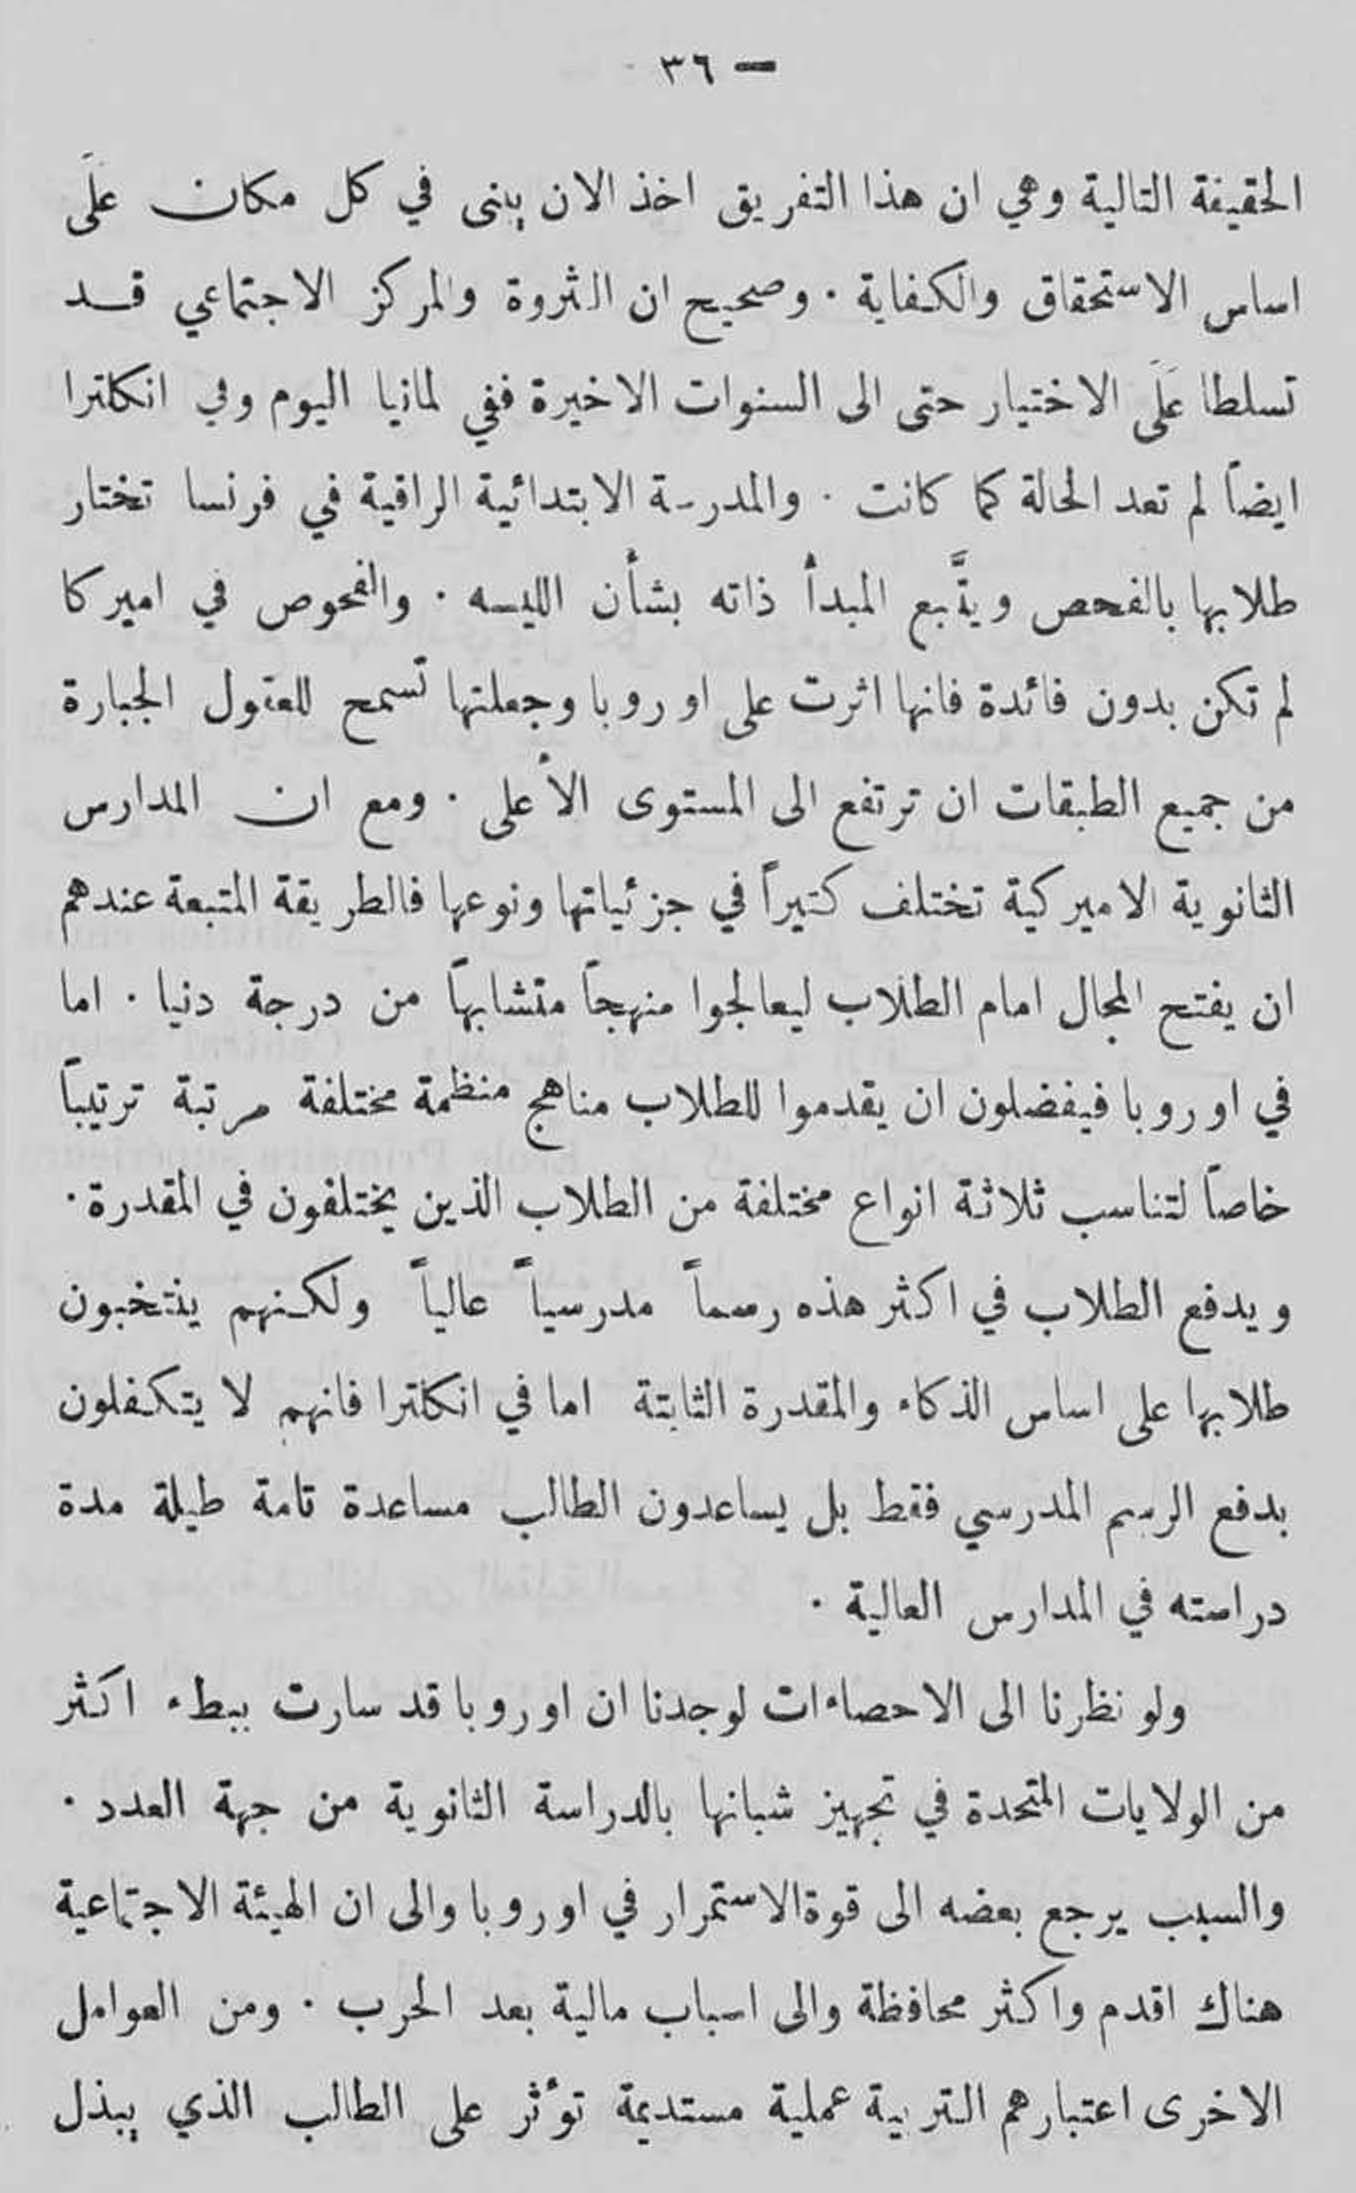 — ٣٦
الحقيقة التالية وهي ان هذا التفريق اخذ الان يبنى في كل مكان عَلَى
اساس الاستحقاق والكفاية . وصحيح ان الثروة والمركز الاجتماعي قد
تسلطا عَلَى الاختيار حتى الى السنوات الاخيرة ففي لمانيا اليوم وفي انكلترا
ايضاً لم تعد الحالة كما كانت . والمدرسة الابتدائية الراقية في فرنسا تختار
طلابها بالفحص ويتَّبع المبدأ ذاته بشأن الليسه . والفحوص في اميركا
لم تكن بدون فائدة فانها اثرت على اوروبا وجعلتها تسمح للعقول الجبارة
من جميع الطبقات ان ترتفع الى المستوى الأعلى . ومع ان المدارس
الثانوية الاميركية تختلف كثيراً في جزئياتها ونوعها فالطريقة المتبعة عندهم
ان يفتح المجال امام الطلاب ليعالجوا منهجاً متشابهاً من درجة دنيا . اما
في اوروبا فيفضلون ان يقدموا للطلاب مناهج منظمة مختلفة مرتبة ترتيباً
خاصاً لتناسب ثلاثة انواع مختلفة من الطلاب الذين يختلفون في المقدرة .
ويدفع الطلاب في اكثر هذه رسماً مدرسياً عالياً ولكنهم ينتخبون
طلابها على اساس الذكاء والمقدرة الثابتة اما في انكلترا فانهم لا يتكفلون
بدفع الرسم المدرسي فقط بل يساعدون الطالب مساعدة تامة طيلة مدة
دراسته في المدارس العالية .
ولو نظرنا الى الاحصاءات لوجدنا ان اوروبا قد سارت ببطء اكثر
من الولايات المتحدة في تجهيز شبانها بالدراسة الثانوية من جهة العدد .
والسبب يرجع بعضه الى قوة الاستمرار في اوروبا والى ان الهيئة الاجتماعية
هناك اقدم واكثر محافظة والى اسباب مالية بعد الحرب . ومن العوامل
الاخرى اعتبارهم التربية عملية مستديمة تؤثر على الطالب الذي يبذل